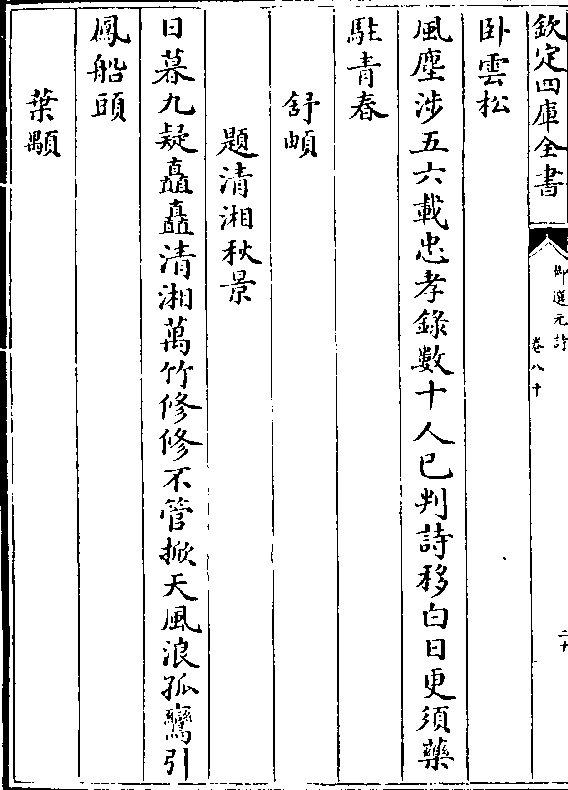 欽定四庫全書
御選元詩
卷八十
二十
卧雲松
風塵涉五六載忠孝錄數十人已判詩移白日更須藥
駐青春
舒頔
題清湘秋景
日暮九疑矗矗清湘萬竹修修不管掀天風浪孤鸞引
鳳船頭
葉顒